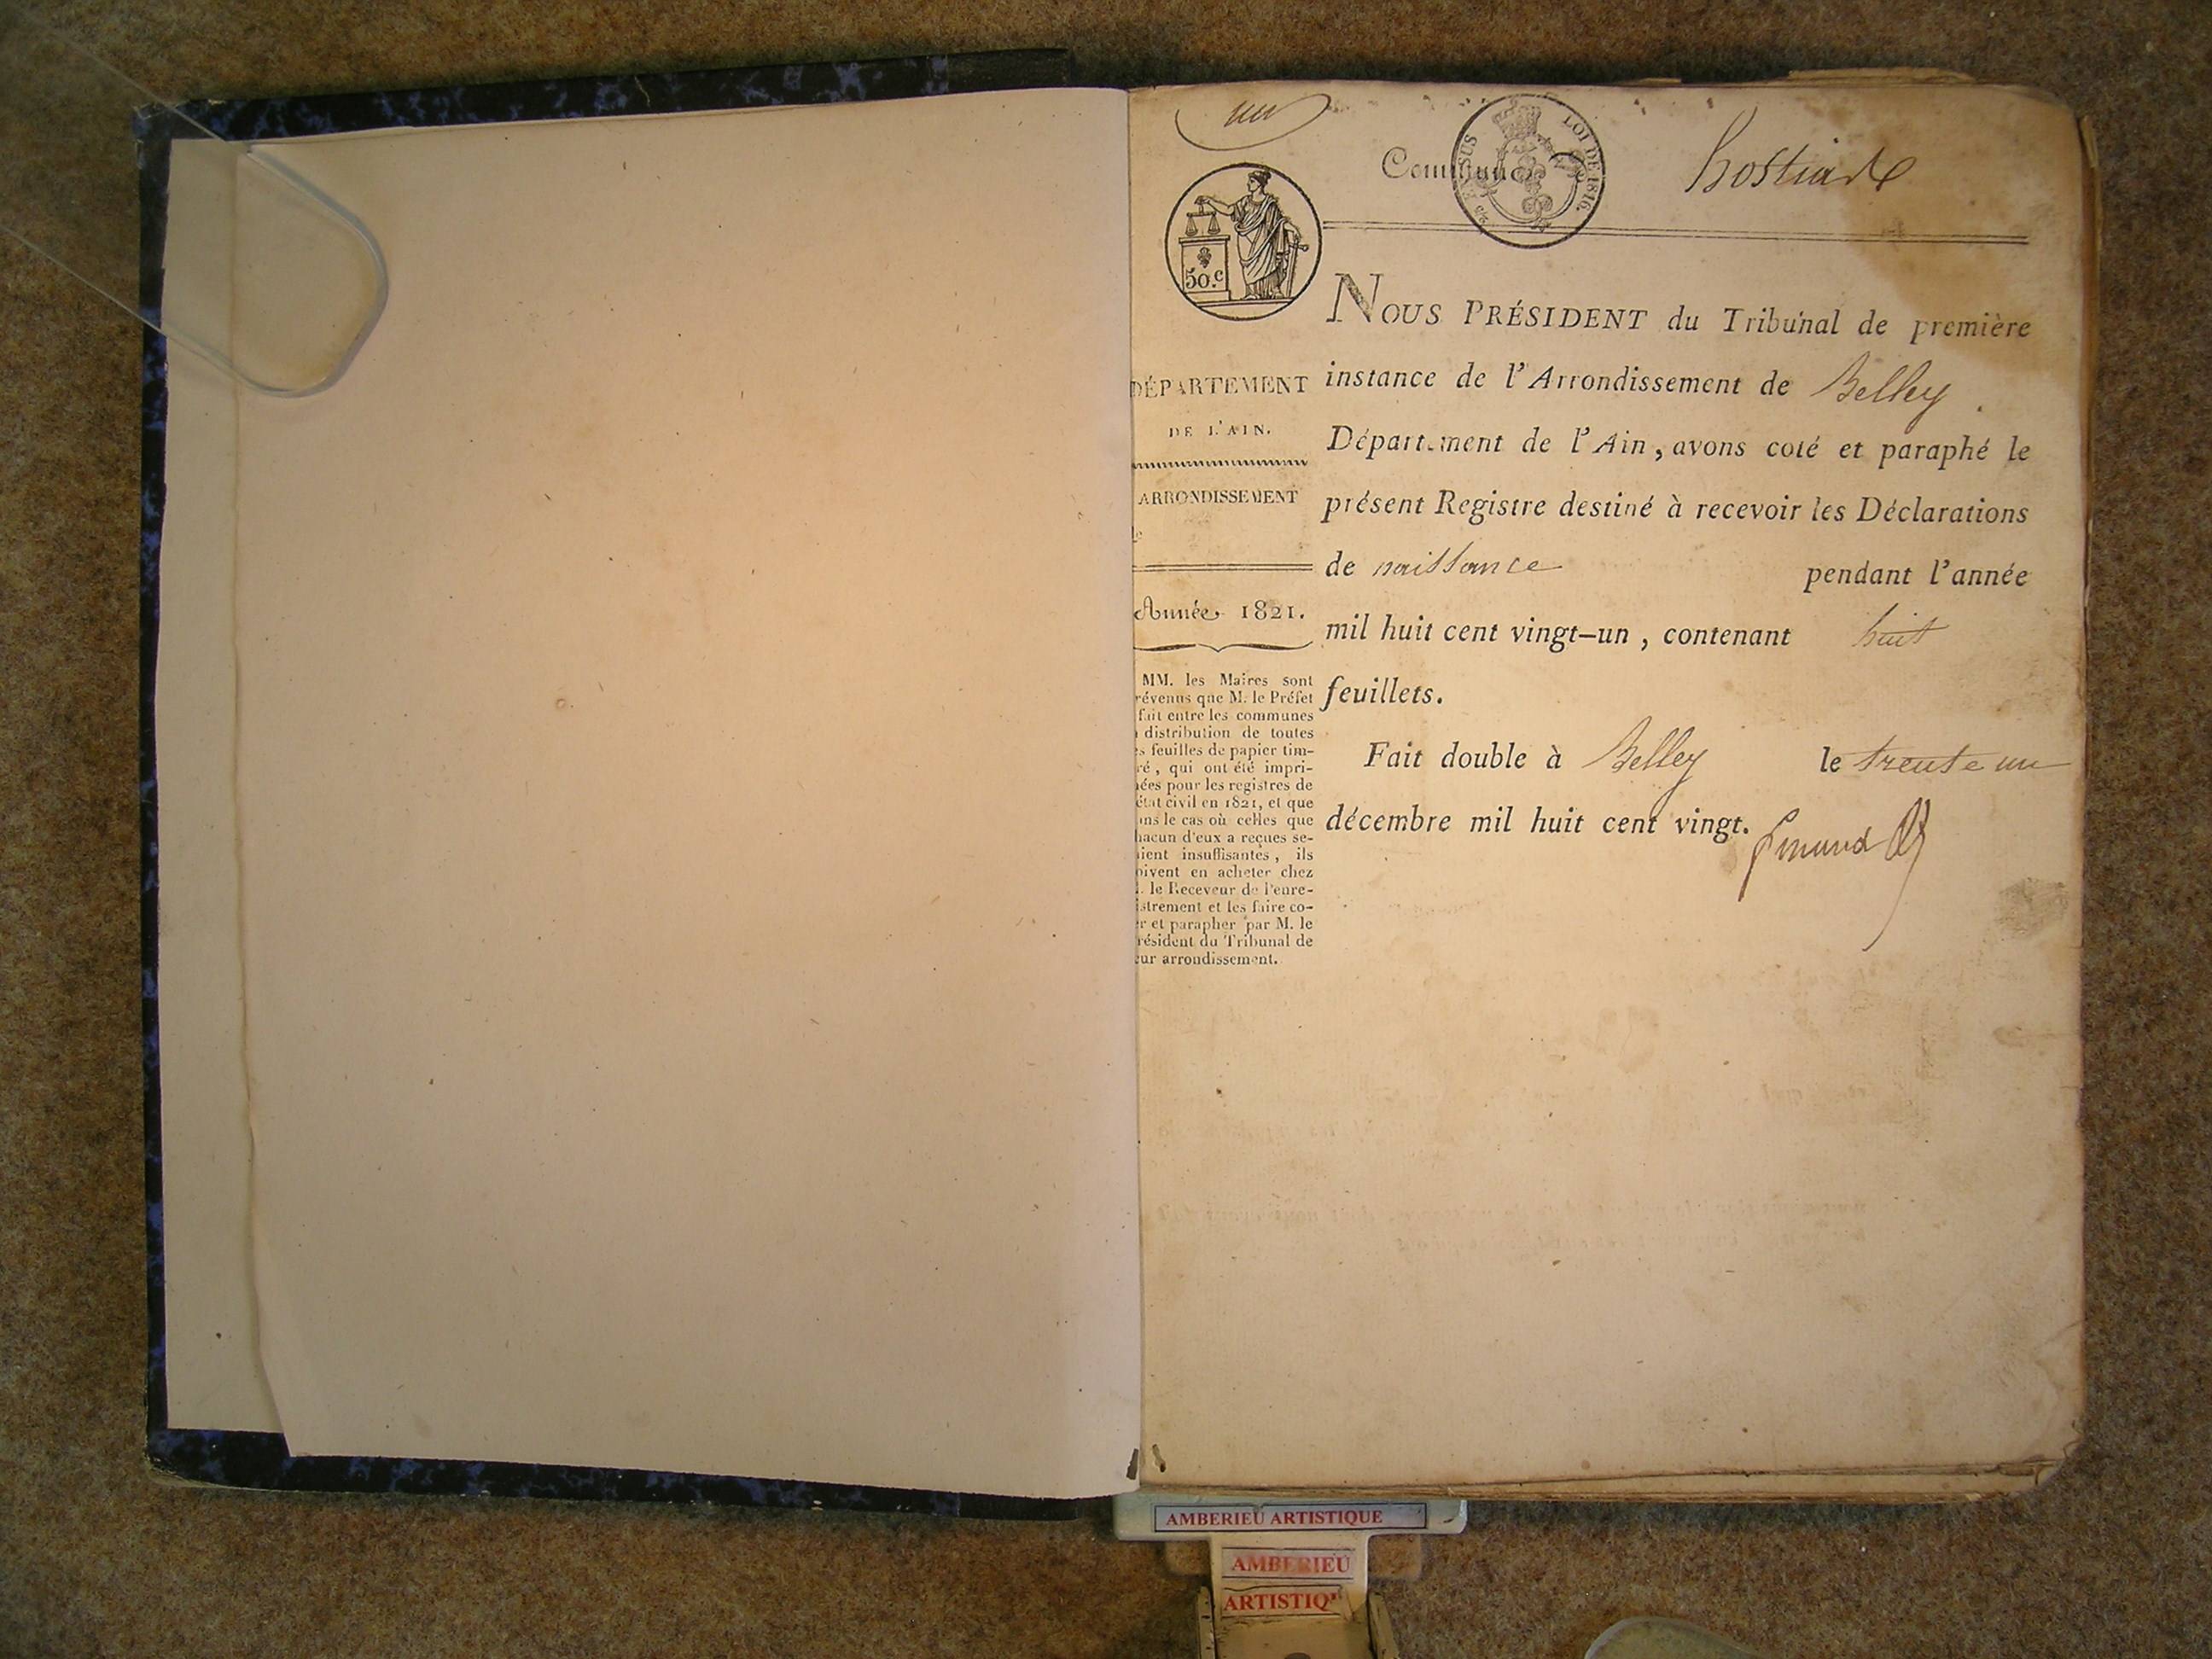 un
Commune de
hostiade
EN SUS
LOI DE 1816.
50.c
NOUS PRÉSIDENT du Tribunal de première
instance de l'Arrondissement de Belley
Département de l'Ain, avons coté et paraphé le
présent Registre destiné à recevoir les Déclarations
de naissance pendant l'année
mil huit cent vingt-un, contenant huit
feuillets.
Fait double à Belley le trente un
décembre mil huit cent vingt.
DÉPARTEMENT
DE L'AIN.
ARRONDISSEMENT
Année 1821.
MM. les Maires sont
révenus que M. le Préfet
fait entre les communes
distribution de toutes
s feuilles de papier tim-
ré, qui ont été impri-
ées pour les registres de
état civil en 1821, et que
ns le cas où celles que
hacun d'eux a reçues se-
ient insuffisantes, ils
oivent en acheter chez
. le Receveur de l'enre-
istrement et les faire co-
r et parapher par M. le
résident du Tribunal de
ur arrondissement.
AMBERIEU ARTISTIQUE
AMBERIEU
ARTISTIQ